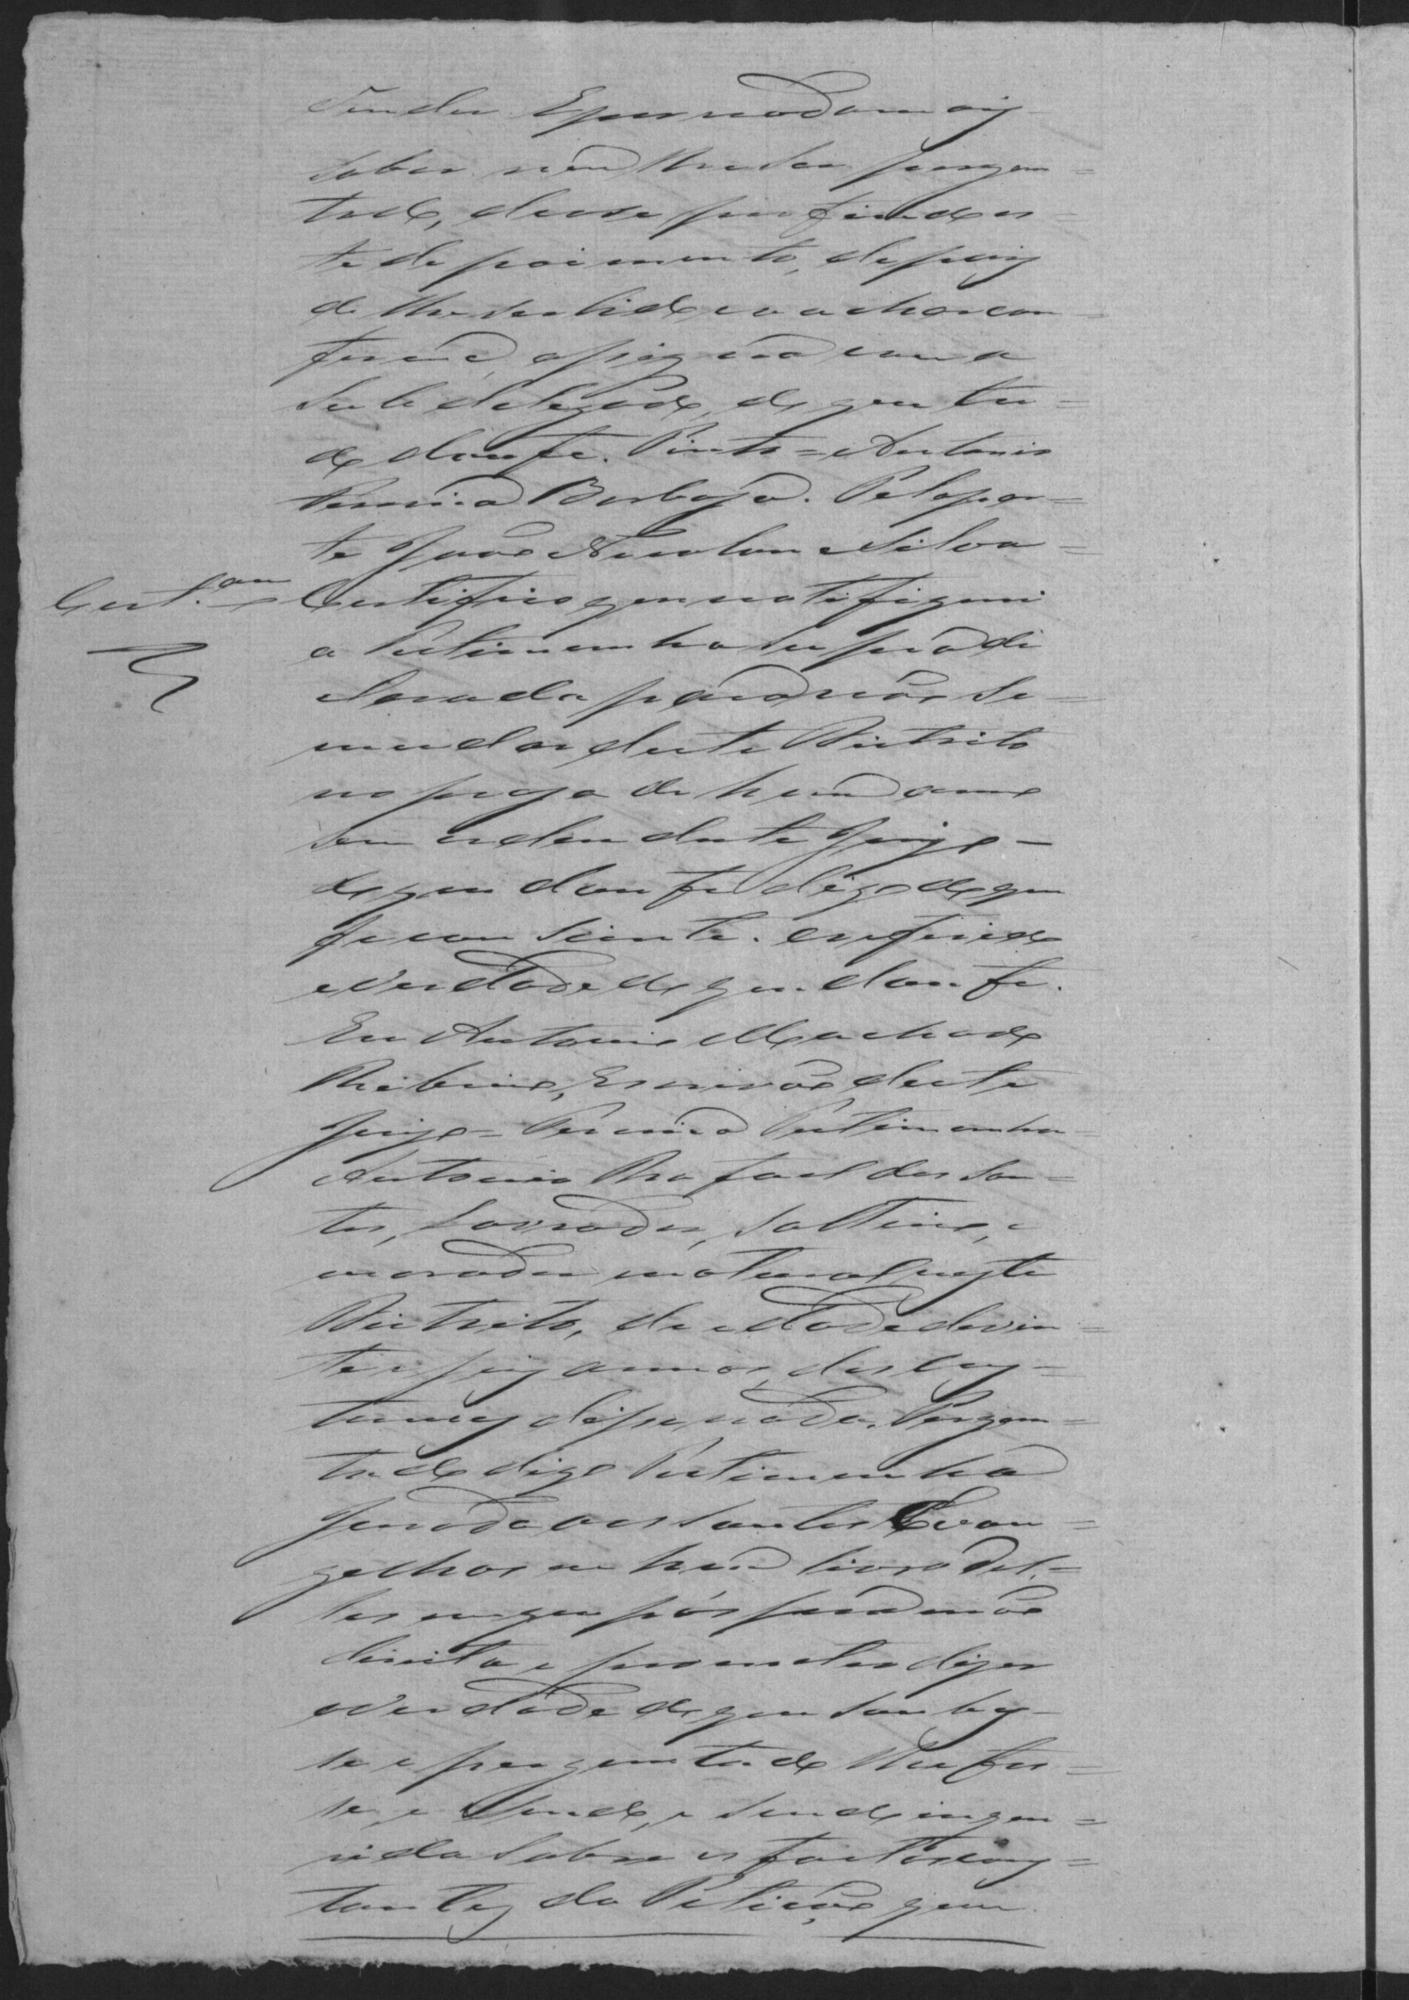 tender E por nada mais
saber nem lhe ser pergun=
tado, deose por findo es=
te depoimento, depois
de lhe ser lido eo achar con=
forme, assigna com o
Subdelegado, do que tu=
do dou fé. Pinto = Antonio
Pereira Barbosa. Pelo par=
te João Nicolau e Silva =
Cert.am Certifico que notifiquei
a Testimunha supra de
clarada para não se
mudar deste Districto
no praso de hum anno
sem ordem deste Juizo -
do que dou fé digo do que
ficou siente. e refirido
e verdade do que dou fé.
Eu Antonio Machado
Ribeiro, Escrivão deste
Juizo = Terceira Testimunha =
Antonio Rafael dos San=
tos, Lavrador, solteiro, e
morador e natural neste
Districto, de edade de vin=
te e seis annos, dos cos=
tumes disse nada. Pergun=
tado digo Testimunha
jurada aos Santos Evan=
gelhos em hum livro del=
les em que pôs sua mão
direita e prometeo dizer
a verdade do que soubes=
se e perguntado lhe fos=
se, e sendo, e sendo inque=
rida sobre os factos cons=
tantes da Petição que